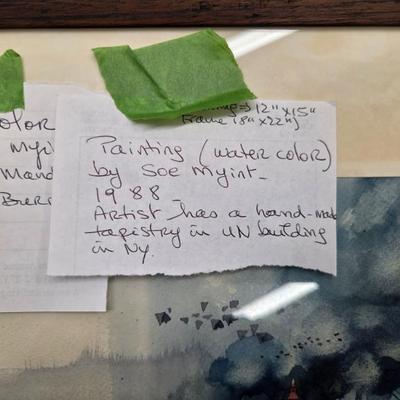 olor
Myi
Mand
Burr
12" x 15"
Frame 18" x 22"
Painting (water color)
by Soe Myint-
1988
Artist has a hand-made
tapistry in UN building
in NY.